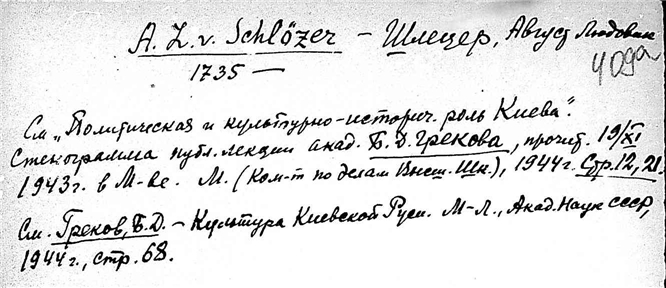 A. L. v. Schlözer – Шлецер, Август Людовик
1735 —
409а
См „Политическая и культурно-историч. роль Киева".
Стенограмма публ. лекции акад. Б. Д. Грекова, прочит. 19/XI
1943г. в М-ве. М. (Ком-т по делам Высш. Шк.), 1944г. Стр. 12, 21.
См. Греков, Б. Д. – Культура Киевской Руси. М-Л., Акад. Наук СССР,
1944г., стр. 68.